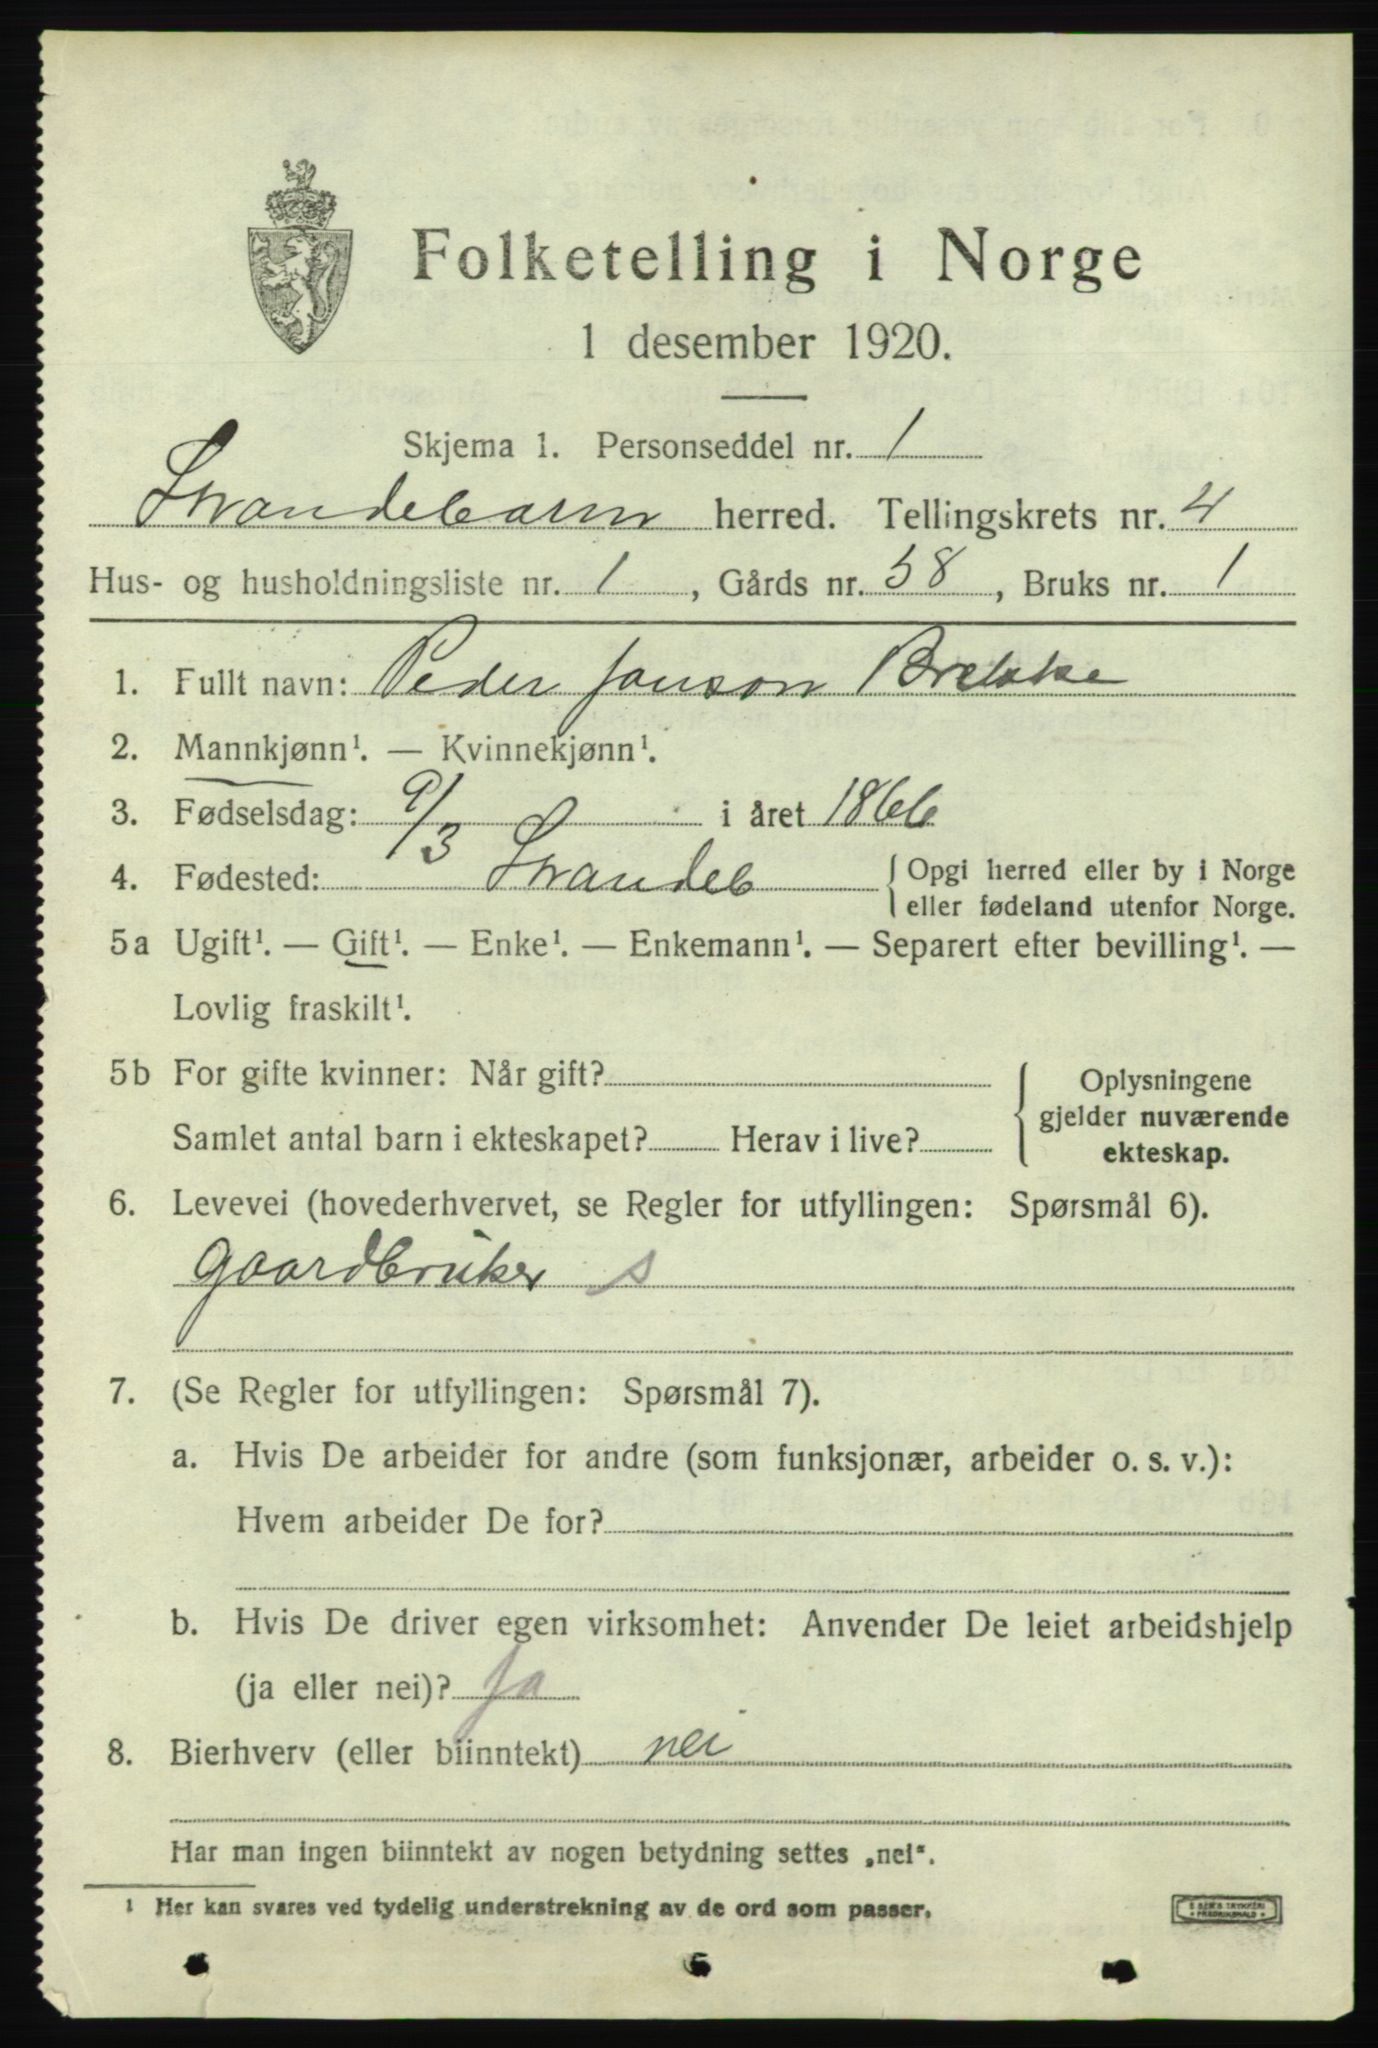 Folketelling i Norge
1 desember 1920.
Skjema 1. Personseddel nr. 1
Strandebarm herred. Tellingskrets nr. 4
Hus- og husholdningsliste nr. 1, Gårds nr. 58, Bruks nr. 1
1. Fullt navn: Peder Janson Brekke
2. Mannkjønn¹. — Kvinnekjønn¹.
3. Fødselsdag: 9/3 i året 1866
4. Fødested: Strandeb { Opgi herred eller by i Norge
eller fødeland utenfor Norge.
5a Ugift¹. — Gift¹. — Enke¹. — Enkemann¹. — Separert efter bevilling¹. —
Lovlig fraskilt¹.
5b For gifte kvinner: Når gift?
Samlet antal barn i ekteskapet? Herav i live?
{ Oplysningene
gjelder nuværende
ekteskap.
6. Levevei (hovederhvervet, se Regler for utfyllingen: Spørsmål 6).
Gaardbruker s
7. (Se Regler for utfyllingen: Spørsmål 7).
a. Hvis De arbeider for andre (som funksjonær, arbeider o. s. v.):
Hvem arbeider De for?
b. Hvis De driver egen virksomhet: Anvender De leiet arbeidshjelp
(ja eller nei)? Ja
8. Bierhverv (eller biinntekt) nei
Har man ingen biinntekt av nogen betydning settes „nei“.
1 Her kan svares ved tydelig understrekning av de ord som passer.